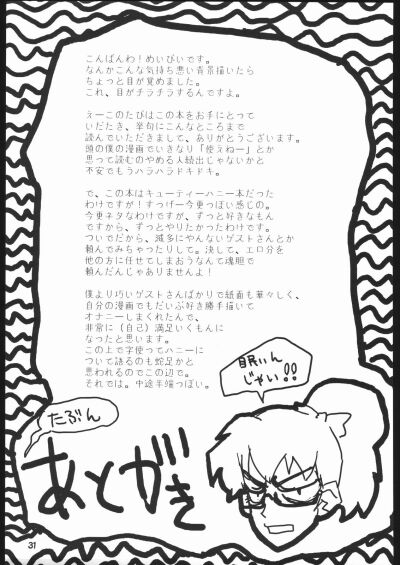 こんばんわ！めいびいです。
なんかこんな気持ち悪い背景描いたら
ちょっと目が覚めました。
これ、目がチラチラするんですよ。
えーこのたびはこの本をお手にとって
いだたき、挙句にこんなところまで
読んでいただきまして、ありがとうございます。
頭の僕の漫画でいきなり「使えねー」とか
思って読むのやめる人続出じゃないかと
不安でもうハラハラドキドキ。
で、この本はキューティーハニー本だった
わけですが！すっげー今更っぽい感じの。
今更ネタなわけですが、ずっと好きなもん
ですから、ずっとやりたかったわけです。
ついでだから、滅多にやんないゲストさんとか
頼んでみちゃったりして。決して、エロ分を
他の方に任せてしまおうなんて魂胆で
頼んだんじゃありませんよ！
僕より巧いゲストさんばかりで紙面も華々しく、
自分の漫画でもだいぶ好き勝手描いて
オナニーしまくれたんで、
非常に（自己）満足いくもんに
なったと思います。
この上で字使ってハニーに
ついて語るのも蛇足かと
思われるのでこの辺で。
それでは。中途半端っぽい。
眠いん
じゃい！！
たぶん
あとがき
31